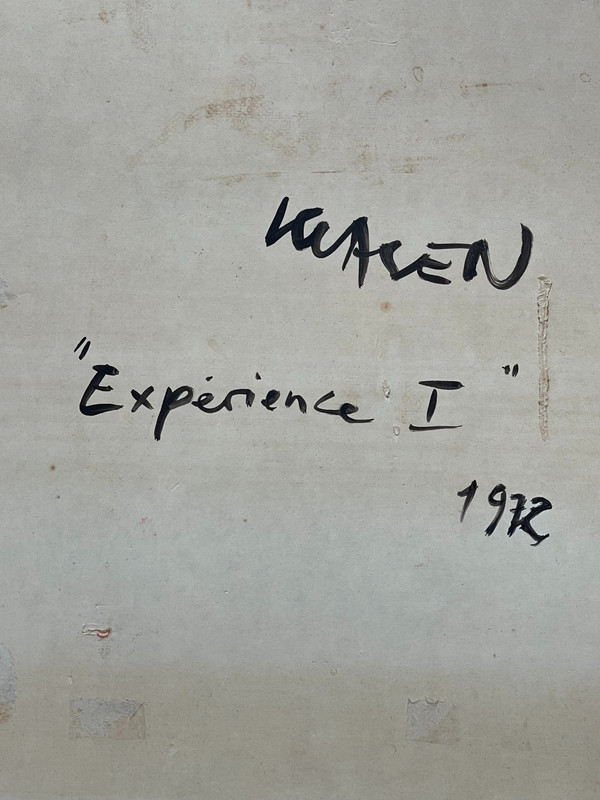 KLASEN
"Expérience I"
1972